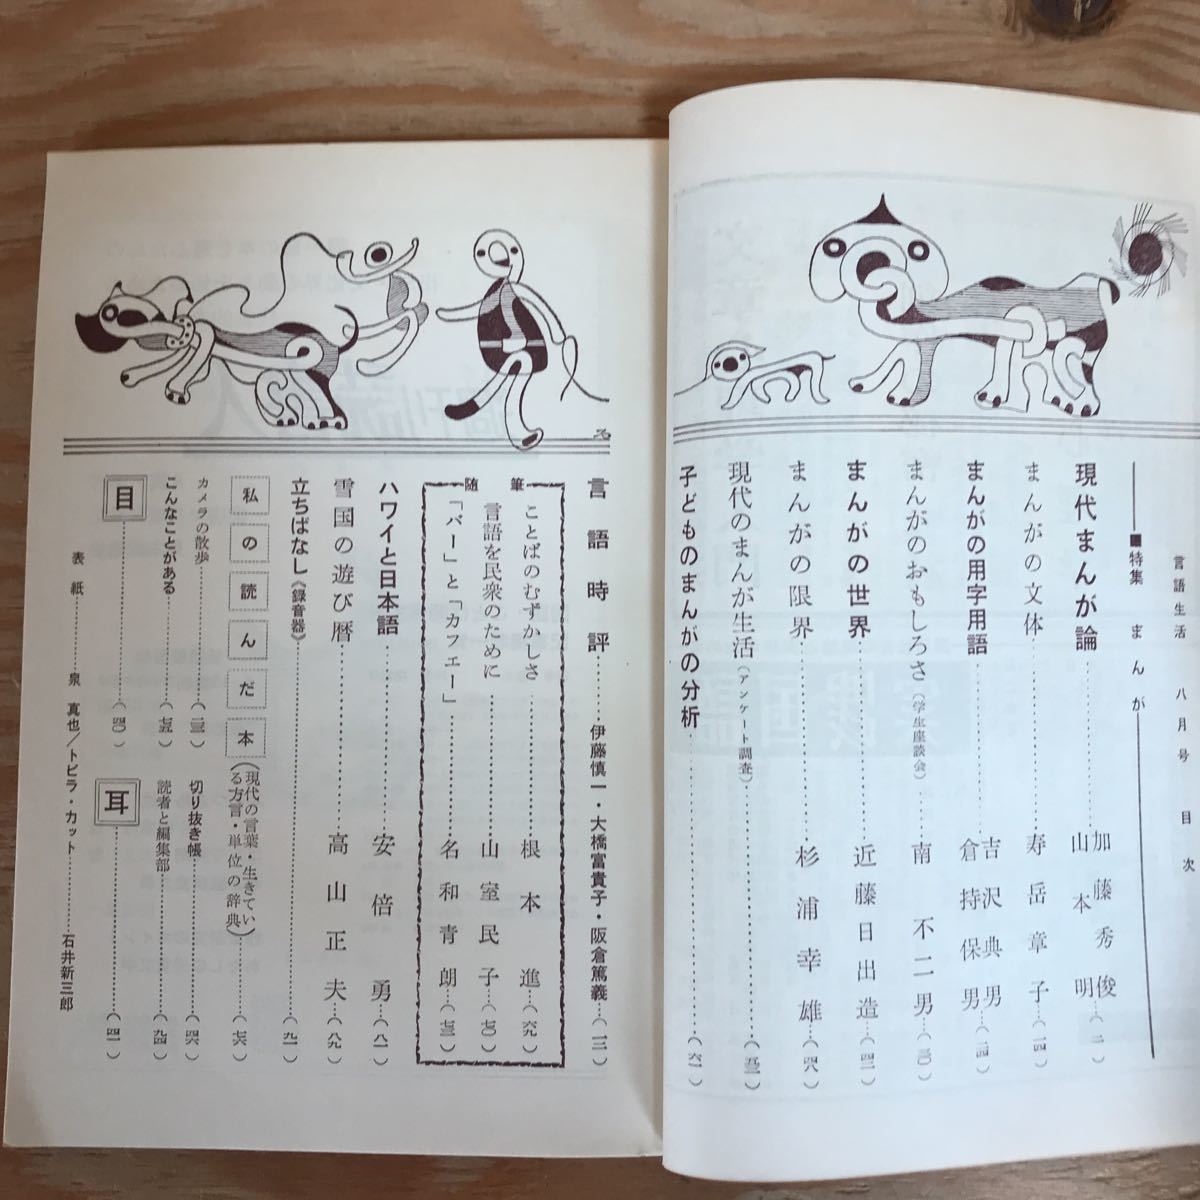 言語生活 八月号 目次
■特集 まんが
現代まんが論 加藤秀俊 山本明 (二)
まんがの文体 寿岳章子 (一四)
まんがの用字用語 吉沢典男 倉持保男 (二四)
まんがのおもしろさ (学生座談会) 南不二男 (三〇)
まんがの世界 近藤日出造 (四二)
まんがの限界 杉浦幸雄 (四八)
現代のまんが生活 (アンケート調査) (五二)
子どものまんがの分析 (六一)
言語時評 伊藤慎一・大橋富貴子・阪倉篤義 (一二)
随筆
ことばのむずかしさ 根本進 (六九)
言語を民衆のために 山室民子 (七〇)
「バー」と「カフェー」 名和青朗 (七三)
ハワイと日本語 安倍勇 (八一)
雪国の遊び暦 高山正夫 (八九)
立ちばなし《録音器》 (九一)
私の読んだ本 (現代の言葉・生きている方言・単位の辞典) (七六)
カメラの散歩 (二三)
切り抜き帳 (四六)
こんなことがある (七五)
読者と編集部 (九四)
目 (四〇)
耳 (四一)
表紙 泉真也/トビラ・カット 石井新三郎